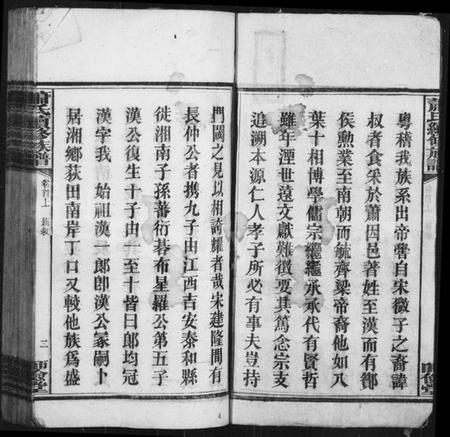 蕭氏續修族譜
粵稽我族系出帝嚳自宋微子之裔諱
叔者食采於蕭因邑著姓至漢而有酇
侯勲業至南朝而毓齊梁帝裔他如八
葉十相博學儒宗繩繩承承代有賢哲
雖年湮世遠文獻難徵要其篤念宗支
追溯本源仁人孝子所必有事夫豈持
門閥之見以相誇耀者哉宋建隆間有
長仲公者攜九子由江西吉安泰和縣
徙湘南子孫蕃衍碁布星羅公第五子
漢公復生十子由一至十皆曰郎均冠
漢字我始祖漢一郎即漢公冢嗣卜
居湘鄉荻田南岸丁口又較他族爲盛
蕭氏續修族譜
卷首上
二
師儉堂